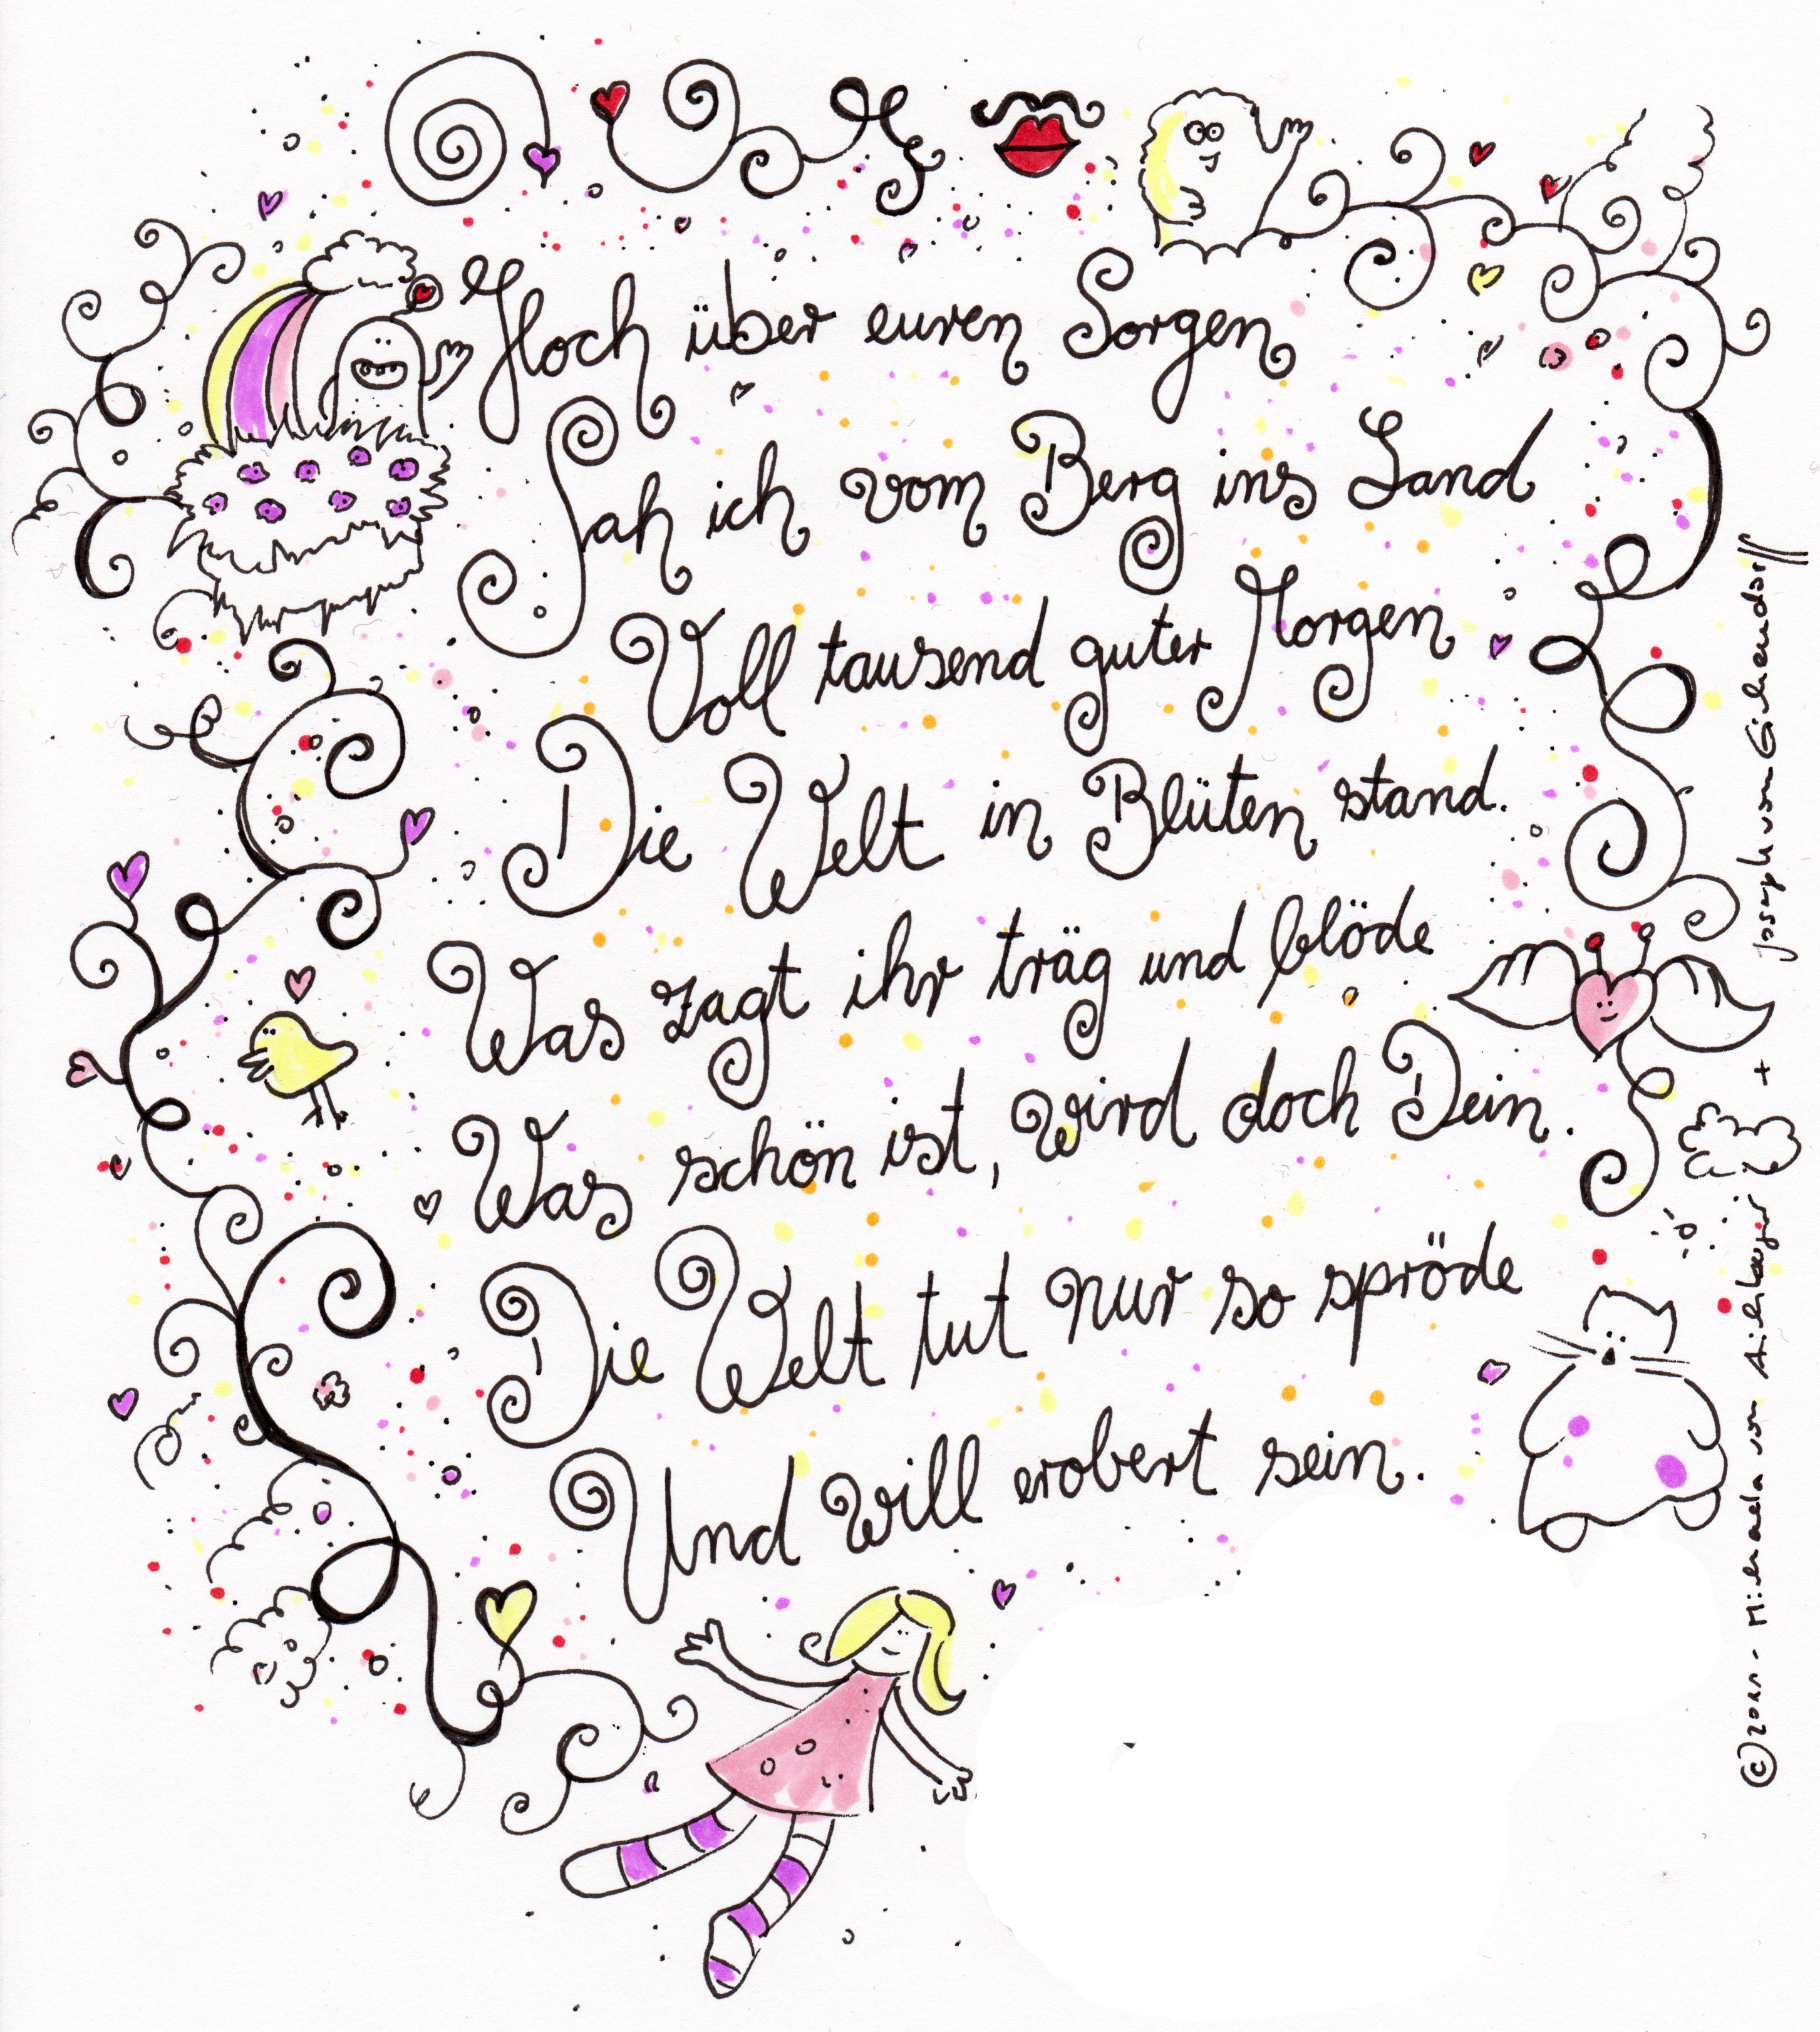 Hoch über euren Sorgen
Sah ich vom Berg ins Land
Voll tausend guter Morgen
Die Welt in Blüten stand.
Was zagt ihr träg und blöde
Was schön ist, wird doch Dein.
Die Welt tut nur so spröde
Und will erobert sein.
©2011 - Michaela von Aichberger + Joseph von Eichendorff